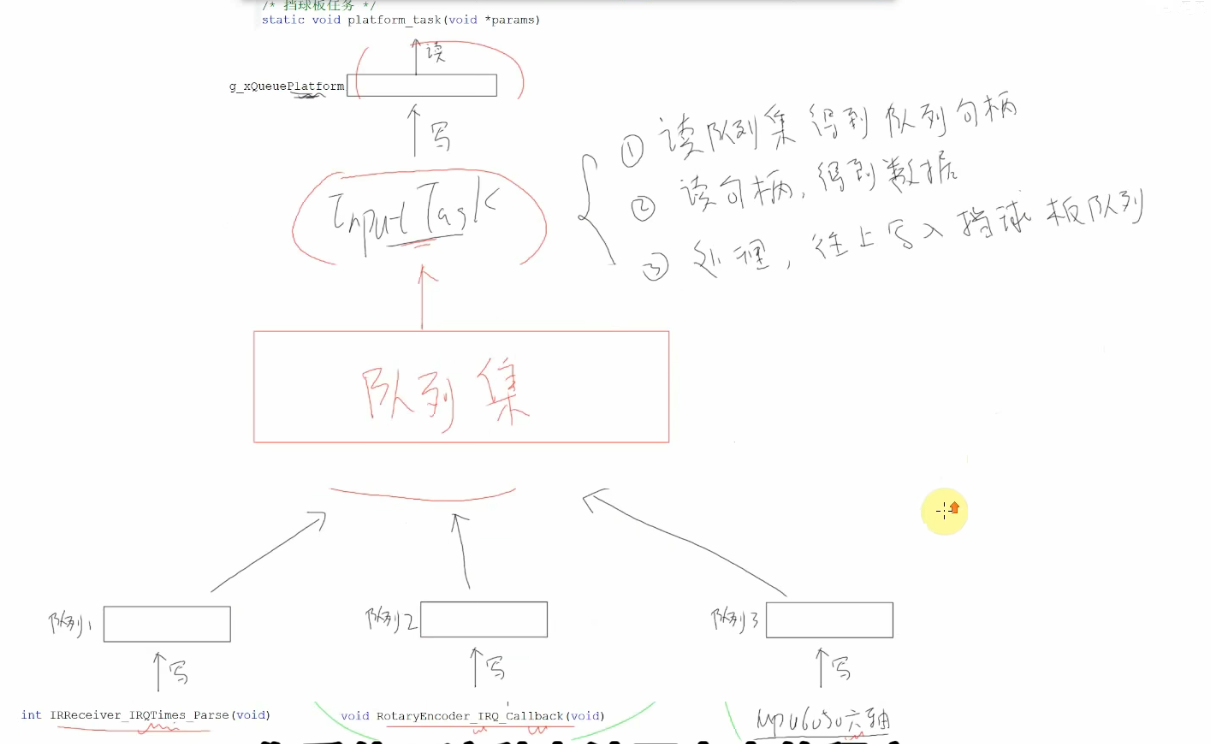 /* 挡球板任务 */
static void platform_task(void *params)
读
g_xQueuePlatform
写
InputTask
① 读队列集 得到 队列句柄
② 读句柄, 得到数据
③ 处理, 往上写入挡球板队列
队列集
队列1
队列2
队列3
写
写
写
int IRReceiver_IRQTimes_Parse(void)
void RotaryEncoder_IRQ_Callback(void)
MPU6050六轴